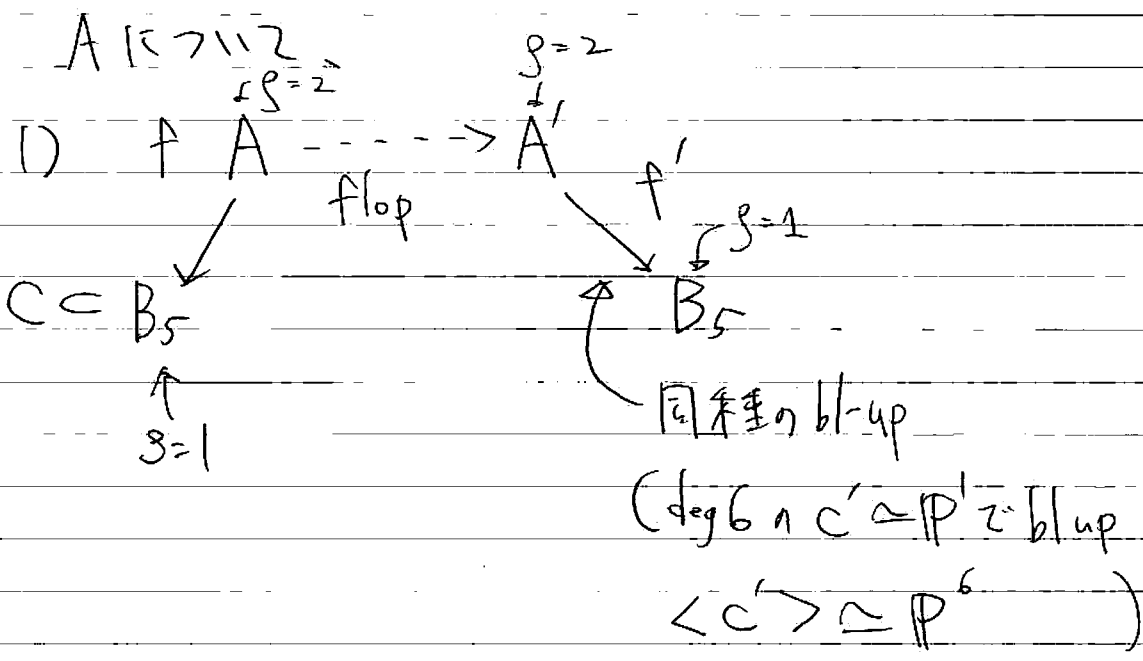 Aについて
ρ=2 ρ=2
1) f A ----> A' f'
flop
ρ=1
C ⊂ B₅ B₅
ρ=1
同種の bl-up
(deg 6 の C' ≃ ℙ¹ で bl up
<C'> ≃ ℙ⁶ )